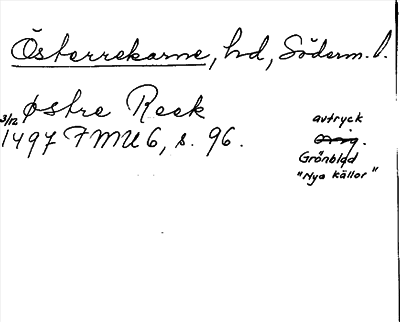 Österrekarne, hd, Söderm. l.
østre Reek
3/12 avtryck
1497 FMU 6, s. 96. Orig.
Grönblad
"Nya källor"